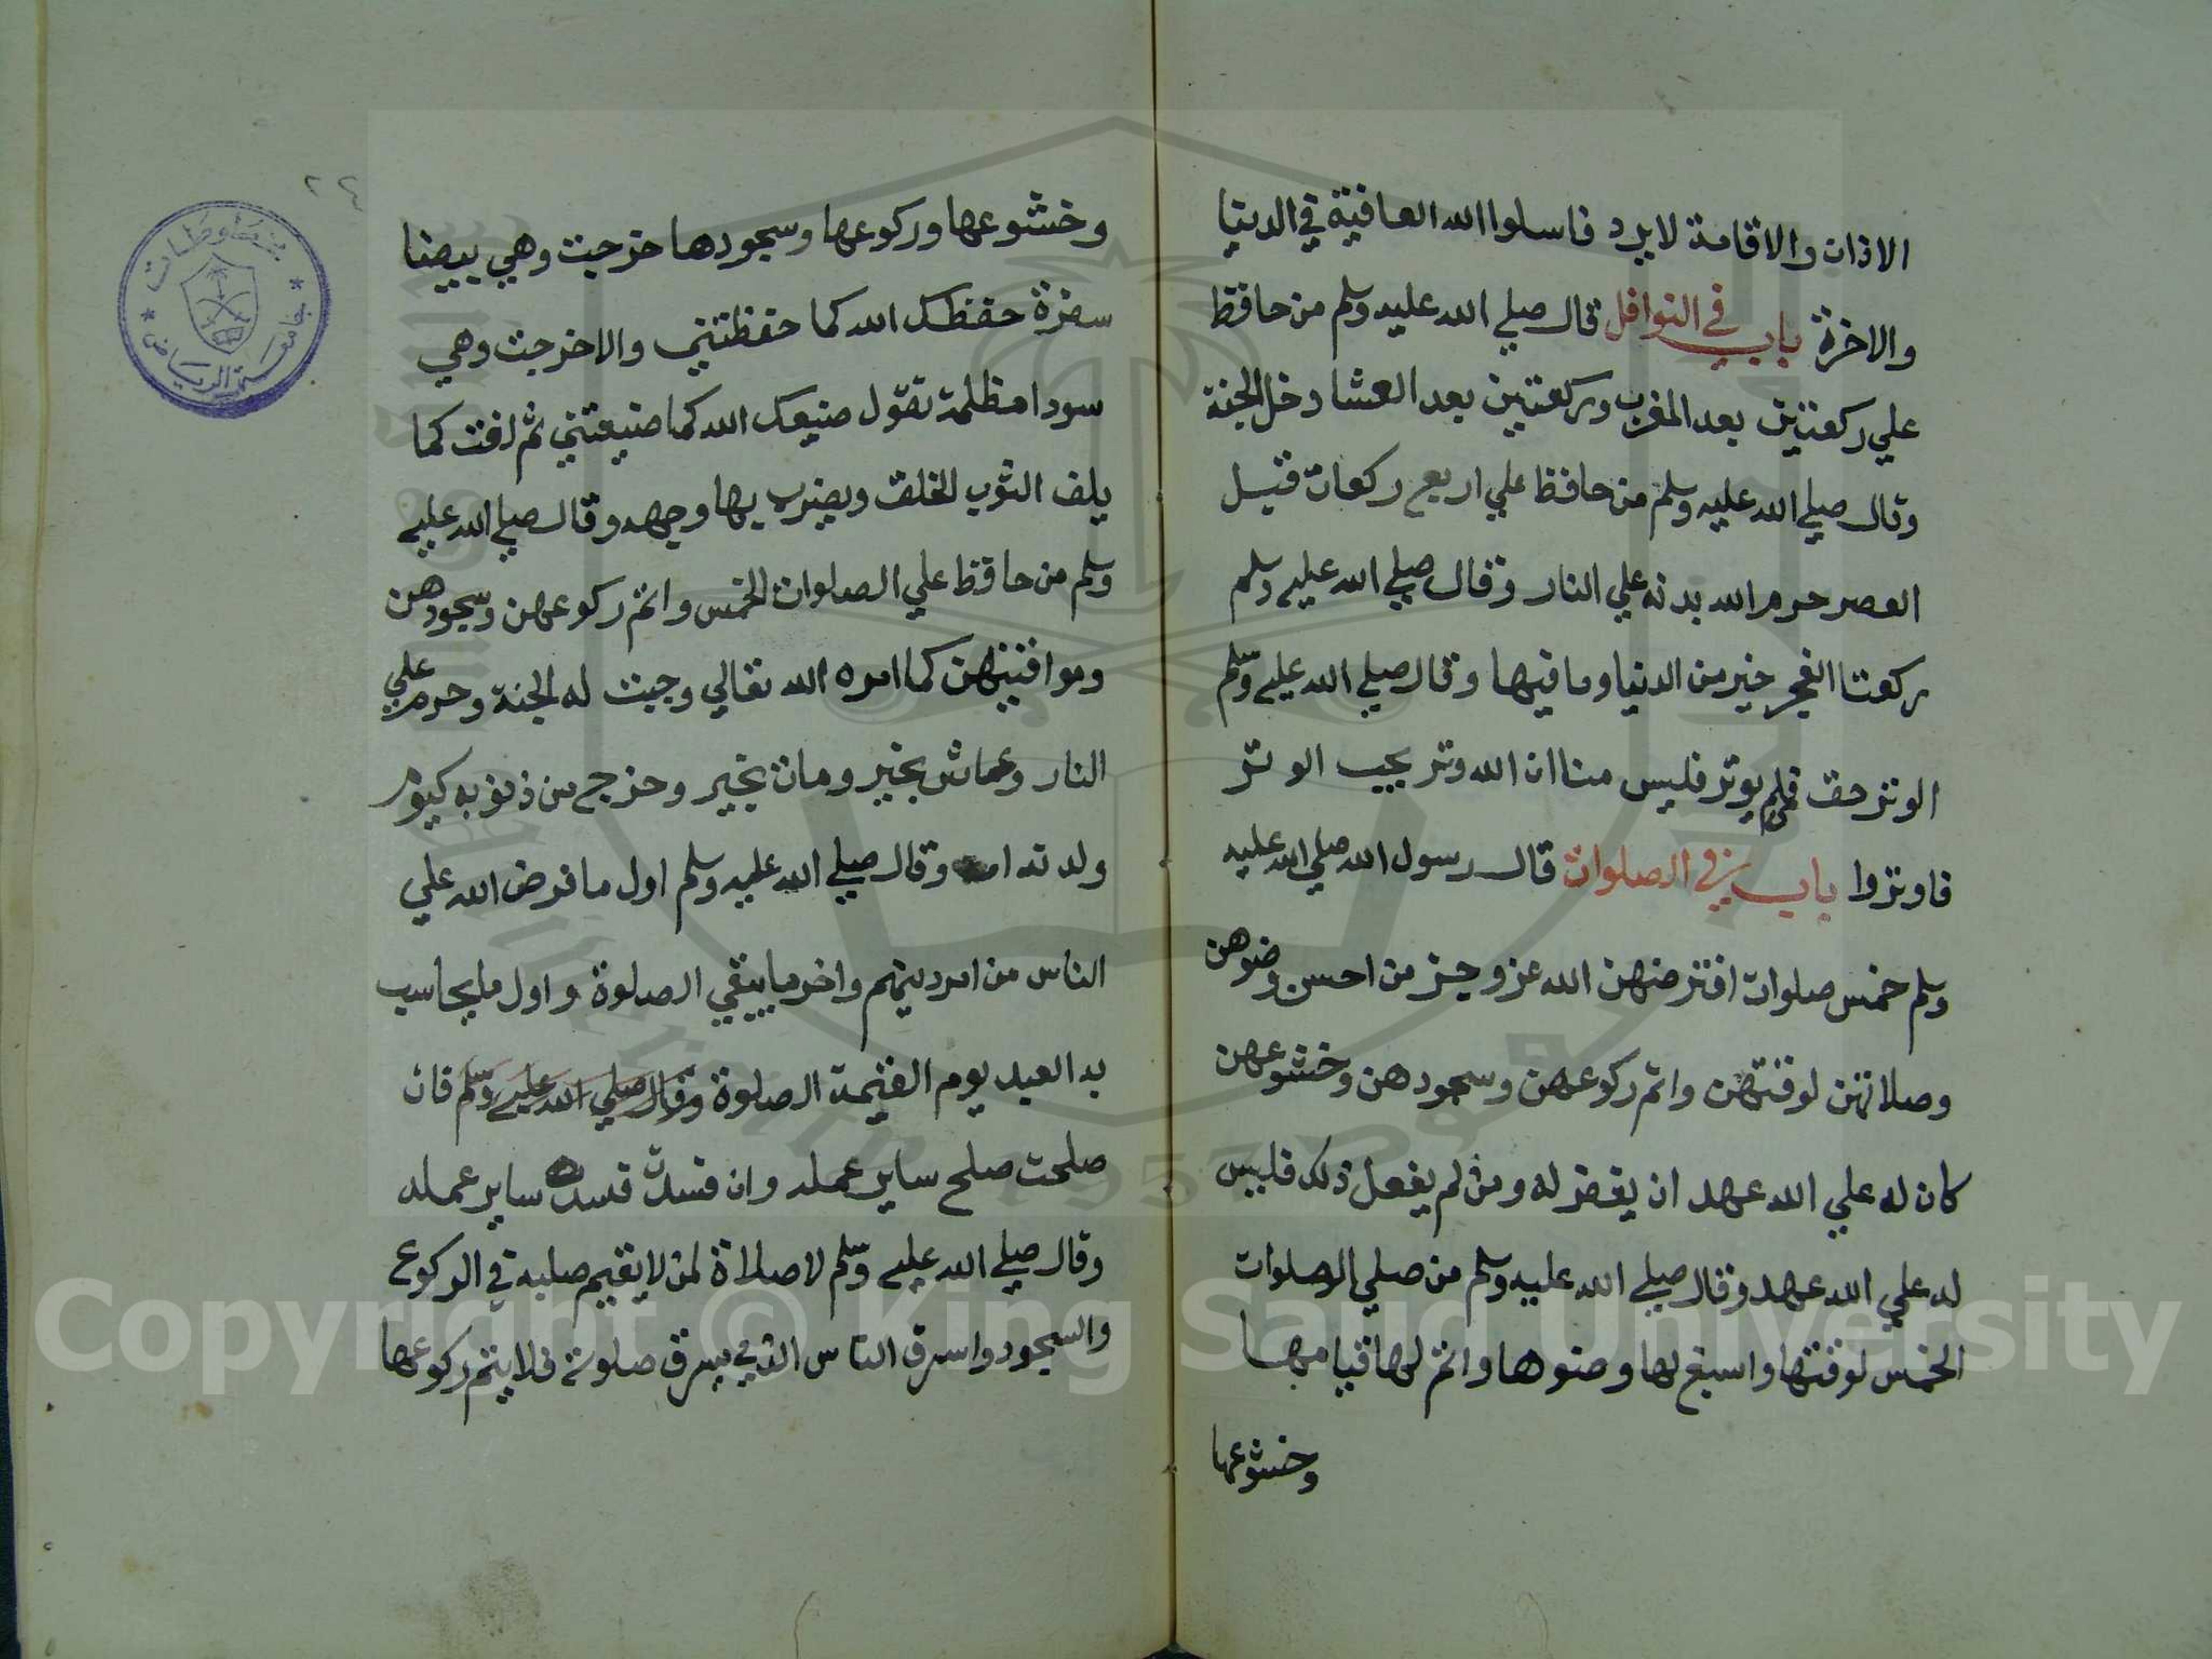 الاذان والاقامة لا يرد فاسلوا الله العافية في الدنيا
والاخرة باب في النوافل قال صلي الله عليه وسلم من حافظ
علي ركعتين بعد المغرب وركعتين بعد العشا دخل الجنة
وقال صلي الله عليه وسلم من حافظ علي اربع ركعات قبل
العصر حرم الله بدنه علي النار وقال صلي الله عليه وسلم
ركعتا الفجر خير من الدنيا وما فيها وقال صلي الله عليه وسلم
الوتر حق فمن لم يوتر فليس منا ان الله وتر يحب الوتر
فاوتروا باب في الصلوات قال رسول الله صلي الله عليه
وسلم خمس صلوات افترضهن الله عز وجل من احسن وضوهن
وصلاتهن لوقتهن واتم ركوعهن وسجودهن وخشوعهن
كان له علي الله عهد ان يغفر له ومن لم يفعل ذلك فليس
له علي الله عهد وقال صلي الله عليه وسلم من صلي الصلوات
الخمس لوقتها واسبغ لها وضوها واتم لها قيامها
وخشوعها
٢٤
وخشوعها وركوعها وسجودها خرجت وهي بيضا
سفرة حفظك الله كما حفظتني والا خرجت وهي
سودا مظلمة تقول ضيعك الله كما ضيعتني ثم لفت كما
يلف الثوب الخلق ويضرب بها وجهه وقال صلي الله عليه
وسلم من حافظ علي الصلوات الخمس واتم ركوعهن وسجودهن
ومواقيتهن كما امره الله تعالي وجبت له الجنة وحرم علي
النار وعاش بخير ومات بخير وخرج من ذنوبه كيوم
ولدته امه وقال صلي الله عليه وسلم اول ما فرض الله علي
الناس من امر دينهم واخر ما يبقي الصلوة واول ما يحاسب
به العبد يوم القيمة الصلوة وقال صلي الله عليه وسلم فان
صلحت صلح ساير عمله وان فسدت فسدت ساير عمله
وقال صلي الله عليه وسلم لا صلاة لمن لا يقيم صلبه في الركوع
والسجود واسرق الناس الذي يسرق صلوته فلا يتم ركوعها
مخطوطات
جامعة الرياض
Copyright © King Saud University
1957